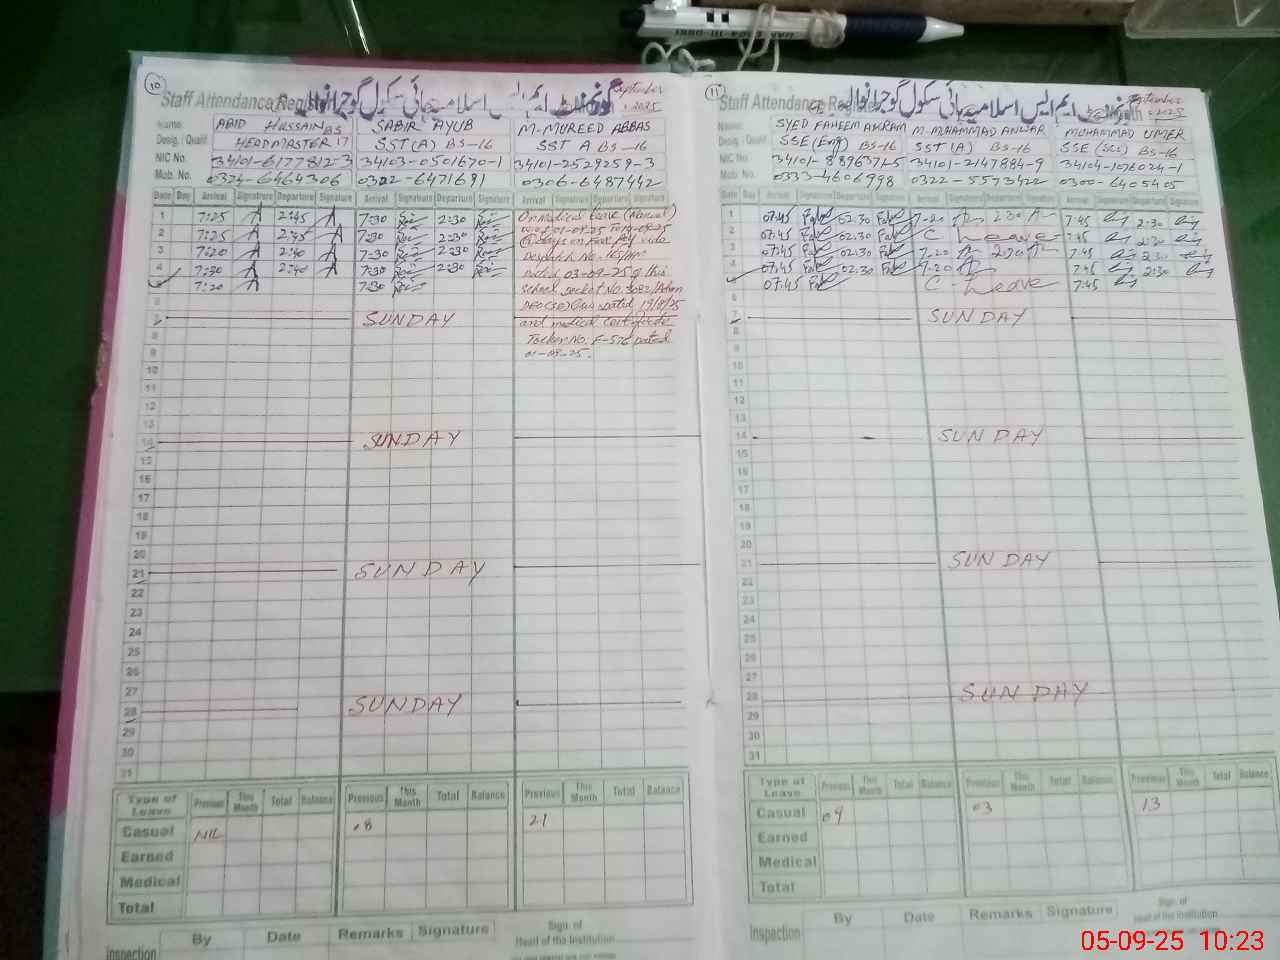 10
گورنمنٹ ایم اے اسلامیہ ہائی سکول گوجرانوالہ
Staff Attendance Register
September
2025
Name ABID HUSSAIN BS SABIR AYUB M. MUREED ABBAS
Desig. Qualif. HEADMASTER 17 SST(A) BS-16 SST A BS-16
NIC No. 34101-6177812-3 34103-0501670-1 34101-2529259-3
Mob. No. 0324-6464306 0322-6471691 0306-6487442
Date Day Arrival Signature Departure Signature Arrival Signature Departure Signature Arrival Signature Departure Signature
1 7:25 2:45 7:30 2:30 On Medical Leave (Normal)
2 7:25 2:45 7:30 2:30
3 7:20 2:40 7:30 2:30
4 7:30 2:40 7:30 2:30 Dated 03-09-25 of this
7:20 7:30 School
6 dated 19/8/25
7 SUNDAY and medical certificate
8 dated
9 01-09-25.
10
11
12
13
14 SUNDAY
15
16
17
18
19
20
21 SUNDAY
22
23
24
25
26
27
28 SUNDAY
29
30
31
Type of Leave Previous This Month Total Balance Previous This Month Total Balance Previous This Month Total Balance
Casual NIL 08 21
Earned
Medical
Total
Inspection By Date Remarks Signature Sign. of
Head of the Institution
11
ایم ایس اسلامیہ ہائی سکول گوجرانوالہ
Staff Attendance Register
September
2025
Name: SYED FAHEEM AKRAM M. MUHAMMAD ANWAR MUHAMMAD UMER
Desig. Qualif. SSE(Eng) BS-16 SST(A) BS-16 SSE(Sci) BS-16
NIC No. 34101-8896371-5 34101-2147884-9 34104-1076024-1
Mob. No. 0333-4606998 0322-5573422 0300-6405405
Date Day Arrival Signature Departure Signature Arrival Signature Departure Signature Arrival Signature Departure Signature
1 07:45 02:30 7-20 2:30 7:45 2:30
2 07:45 02:30 C Leave 7:45 2:30
3 07:45 02:30 7-20 7:45 2:30
4 07:45 02:30 7-20 7:45 2:30
07:45 C-Leave 7:45
6
7 SUNDAY
8
9
10
11
12
13
14 SUNDAY
15
16
17
18
19
20
21 SUNDAY
22
23
24
25
26
27
28 SUNDAY
29
30
31
Type of Leave Previous This Month Total Balance Previous This Month Total Balance Previous This Month Total Balance
Casual 09 03 13
Earned
Medical
Total
Inspection By Date Remarks Signature Sign. of
Head of the Institution
05-09-25 10:23